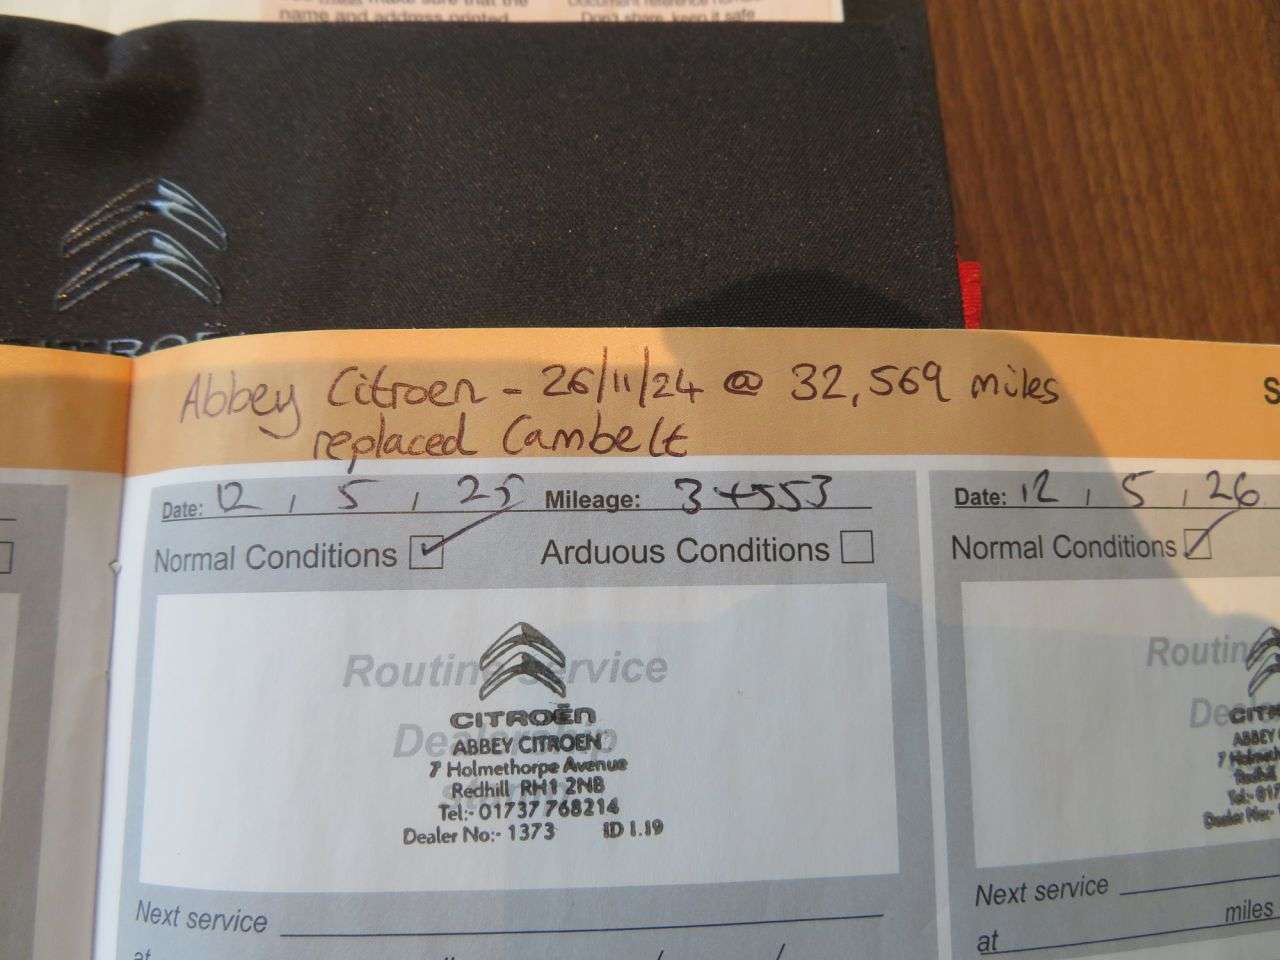 name and address printed
Don't share, keep it safe
CITROËN
Abbey Citroen - 26/11/24 @ 32,569 miles
replaced Cambelt
Date: 12 , 5 , 25 Mileage: 34553
Normal Conditions Arduous Conditions
Routine Service
Dealership
CITROËN
ABBEY CITROEN
7 Holmethorpe Avenue
Redhill RH1 2NB
Tel:- 01737 768214
Dealer No:- 1373 ID 1.19
Next service
at
Date: 12 , 5 , 26
Normal Conditions
Next service
miles
at